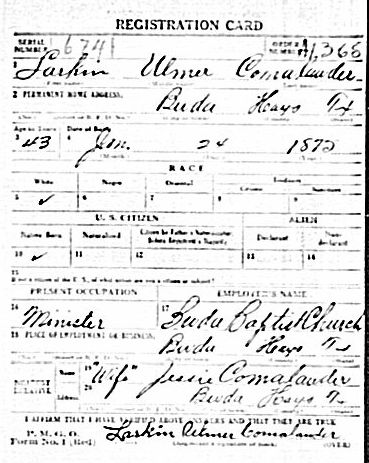 REGISTRATION CARD
SERIAL NUMBER 6741 ORDER NUMBER 1368
1 Larkin Ulmer Comalander
2 PERMANENT HOME ADDRESS:
Buda Hays Tx
Age in Years Date of Birth
43 Jan. 24 1875
RACE
White Negro Oriental Indian
Citizen Noncitizen
5 ✓ 6 7 8 9
U. S. CITIZEN ALIEN
Native Born Naturalized Citizen by Father's Naturalization Before Registrant's Majority Declarant Non-declarant
10 ✓ 11 12 13 14
15
If not a citizen of the U. S., of what nation are you a citizen or subject?
PRESENT OCCUPATION EMPLOYER'S NAME
16 Minister 17 Buda Baptist Church
18 PLACE OF EMPLOYMENT OR BUSINESS:
Buda Hays Tx
NEAREST RELATIVE Name 19 "Wife" Jessie Comalander
20 Buda Hays Tx
I AFFIRM THAT I HAVE VERIFIED ABOVE ANSWERS AND THAT THEY ARE TRUE
P. M. G. O.
Form No. 1 (Red) Larkin Ulmer Comalander
(OVER)